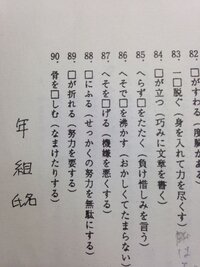 82 □がすわる(度胸がある
83 一□脱ぐ(身を入れて力を尽くす)
84 □が立つ(巧みに文章を書く)
85 へらず□をたたく(負け惜しみを言う)
86 へそで□を沸かす(おかしくてたまらない)
87 へそを□げる(機嫌を悪くする)
88 □にふる(せっかくの努力を無駄にする)
89 □が折れる(努力を要する)
90 骨を□しむ(なまけたりする)
年 組 氏名